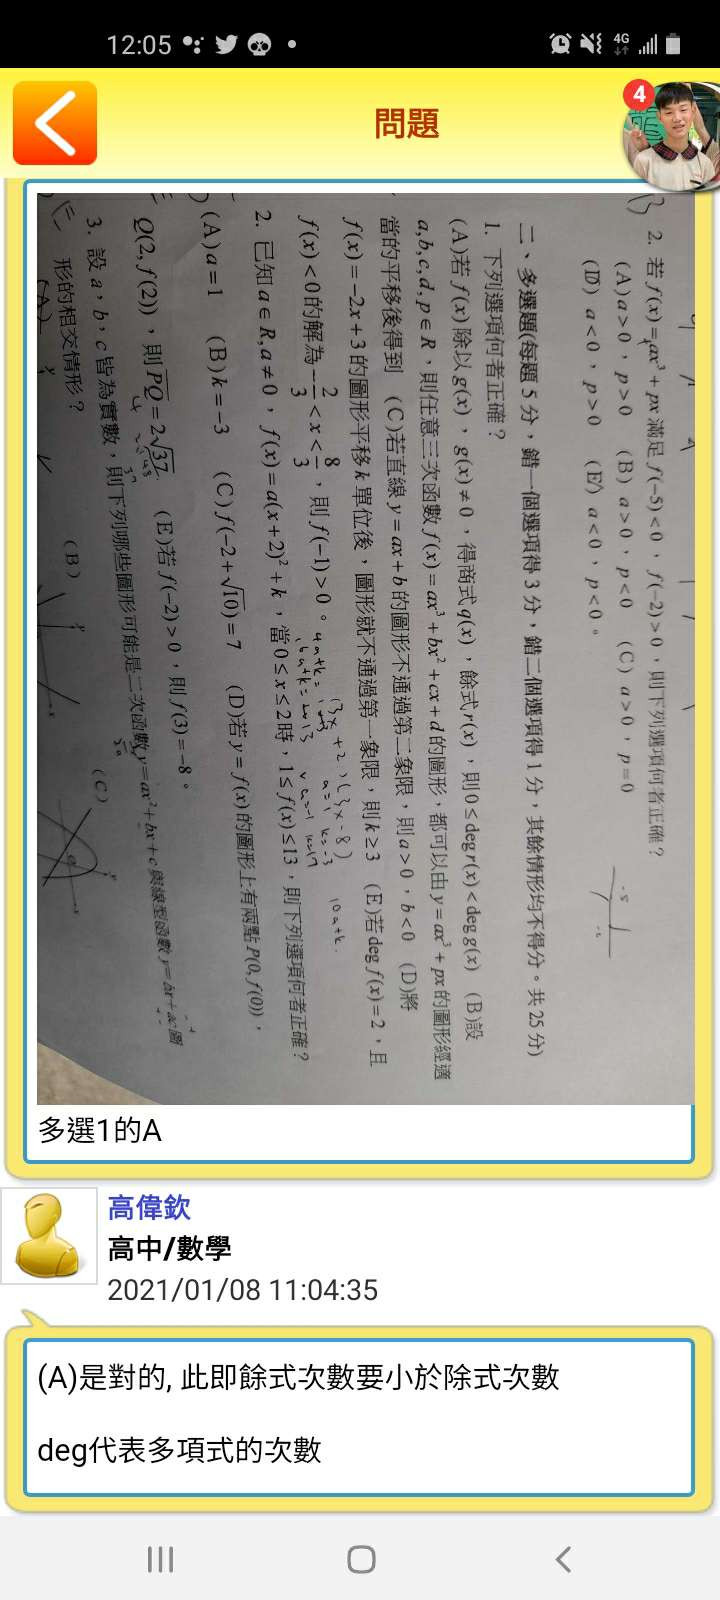 12:05
4G
問題
4
2. 若 f(x)=ax³+px 滿足 f(-5)<0，f(-2)>0，則下列選項何者正確？
(A)a>0，p>0 (B) a>0，p<0 (C) a>0，p=0
(D) a<0，p>0 (E) a<0，p<0。
二、多選題(每題 5 分，錯一個選項得 3 分，錯二個選項得 1 分，其餘情形均不得分。共 25 分)
1. 下列選項何者正確？
(A)若 f(x)除以 g(x)，g(x)≠0，得商式 q(x)，餘式 r(x)，則0≤deg r(x)<deg g(x) (B)設
a,b,c,d,p∈R，則任意三次函數 f(x)=ax³+bx²+cx+d 的圖形，都可以由 y=ax³+px 的圖形經適
當的平移後得到 (C)若直線 y=ax+b 的圖形不通過第二象限，則 a>0，b<0 (D)將
f(x)=-2x+3 的圖形平移 k 單位後，圖形就不通過第一象限，則 k≥3 (E)若 deg f(x)=2，且
f(x)<0的解為 -2/3<x<8/3，則 f(-1)>0。
(3x+2)(3x-8)
2. 已知 a∈R,a≠0，f(x)=a(x+2)²+k，當 0≤x≤2時，1≤f(x)≤13，則下列選項何者正確？
(A)a=1 (B)k=-3 (C)f(-2+√10)=7 (D)若 y=f(x)的圖形上有兩點 P(0,f(0))，
Q(2,f(2))，則 PQ=2√37 (E)若 f(-2)>0，則 f(3)=-8。
3. 設 a，b，c 皆為實數，則下列哪些圖形可能是二次函數 y=ax²+bx+c 與線型函數 y=bx+ac 圖
形的相交情形？
(A) (B) (C)
多選1的A
高偉欽
高中/數學
2021/01/08 11:04:35
(A)是對的, 此即餘式次數要小於除式次數
deg代表多項式的次數